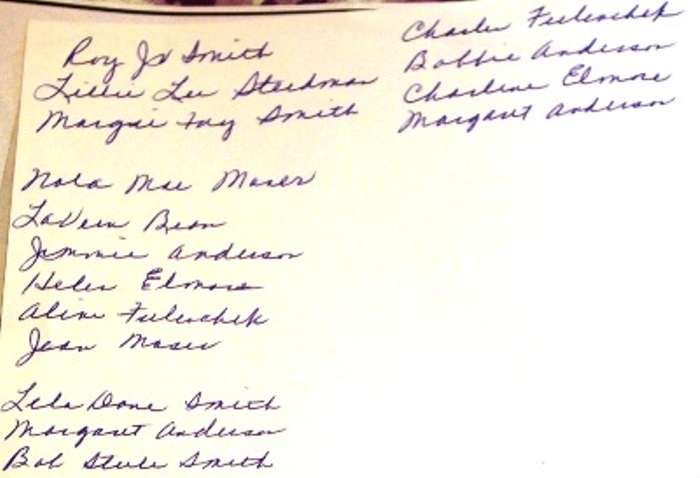 Roy Jo Smith
Lillie Lee Steedman
Margie Fay Smith
Nola Mae Moser
LaVern Bean
Jimmie Anderson
Helen Elmore
Aline Fulenchek
Jean Moser
Lela Dane Smith
Margaret Anderson
Bob Steele Smith
Charles Fulenchek
Bobbie Anderson
Charlene Elmore
Margaret Anderson